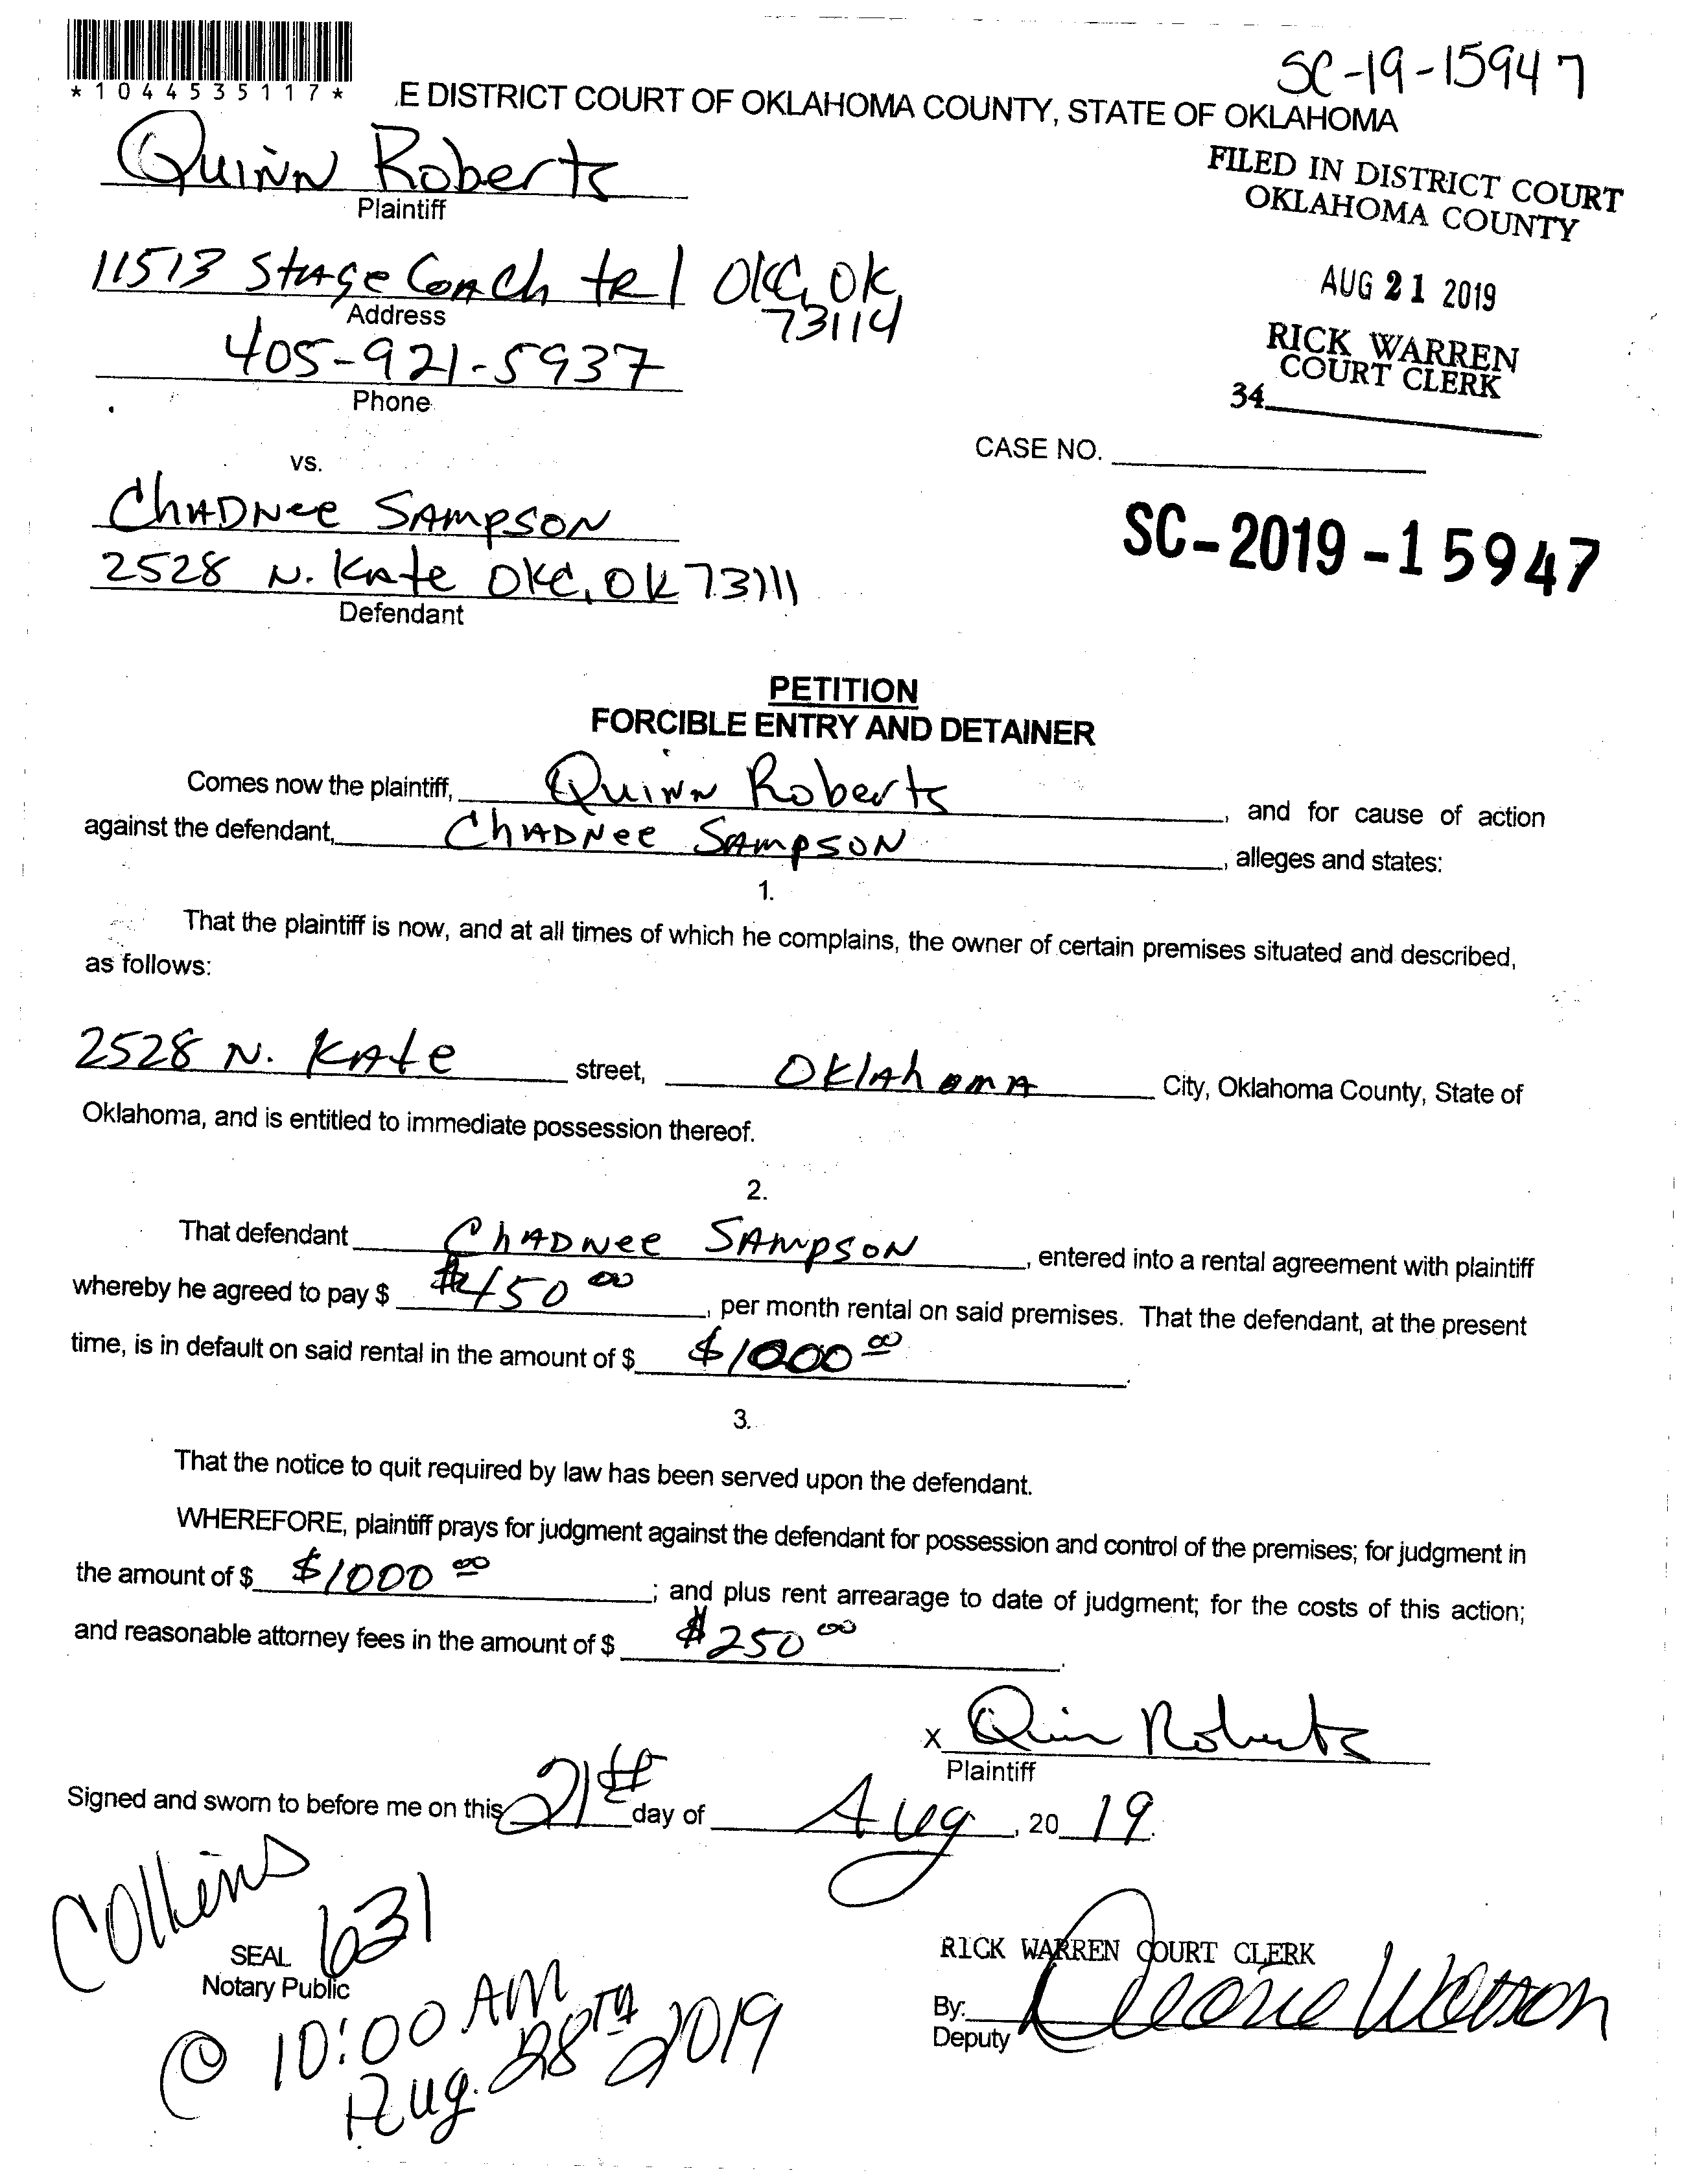 SC-19-15947
*1044535117*
E DISTRICT COURT OF OKLAHOMA COUNTY, STATE OF OKLAHOMA
Quinn Roberts
Plaintiff
FILED IN DISTRICT COURT
OKLAHOMA COUNTY
11513 StageCoach tRl OKC, OK,
73114
Address
AUG 21 2019
405-921-5937
Phone
RICK WARREN
COURT CLERK
34
CASE NO.
vs.
Chadnee Sampson
SC-2019-15947
2528 N. Kate OKC, OK 73111
Defendant
PETITION
FORCIBLE ENTRY AND DETAINER
Comes now the plaintiff, Quinn Roberts, and for cause of action
against the defendant, Chadnee Sampson, alleges and states:
1.
That the plaintiff is now, and at all times of which he complains, the owner of certain premises situated and described,
as follows:
2528 N. Kate street, Oklahoma City, Oklahoma County, State of
Oklahoma, and is entitled to immediate possession thereof.
2.
That defendant Chadnee Sampson, entered into a rental agreement with plaintiff
whereby he agreed to pay $ $450 00, per month rental on said premises. That the defendant, at the present
time, is in default on said rental in the amount of $ $1000 00.
3.
That the notice to quit required by law has been served upon the defendant.
WHEREFORE, plaintiff prays for judgment against the defendant for possession and control of the premises; for judgment in
the amount of $ $1000 00; and plus rent arrearage to date of judgment; for the costs of this action;
and reasonable attorney fees in the amount of $ $250 00.
X Quin Roberts
Plaintiff
Signed and sworn to before me on this 21st day of Aug, 20 19.
Collins
631
SEAL
Notary Public
RICK WARREN COURT CLERK
By:
Deputy
@ 10:00 AM
Aug. 28TH 2019